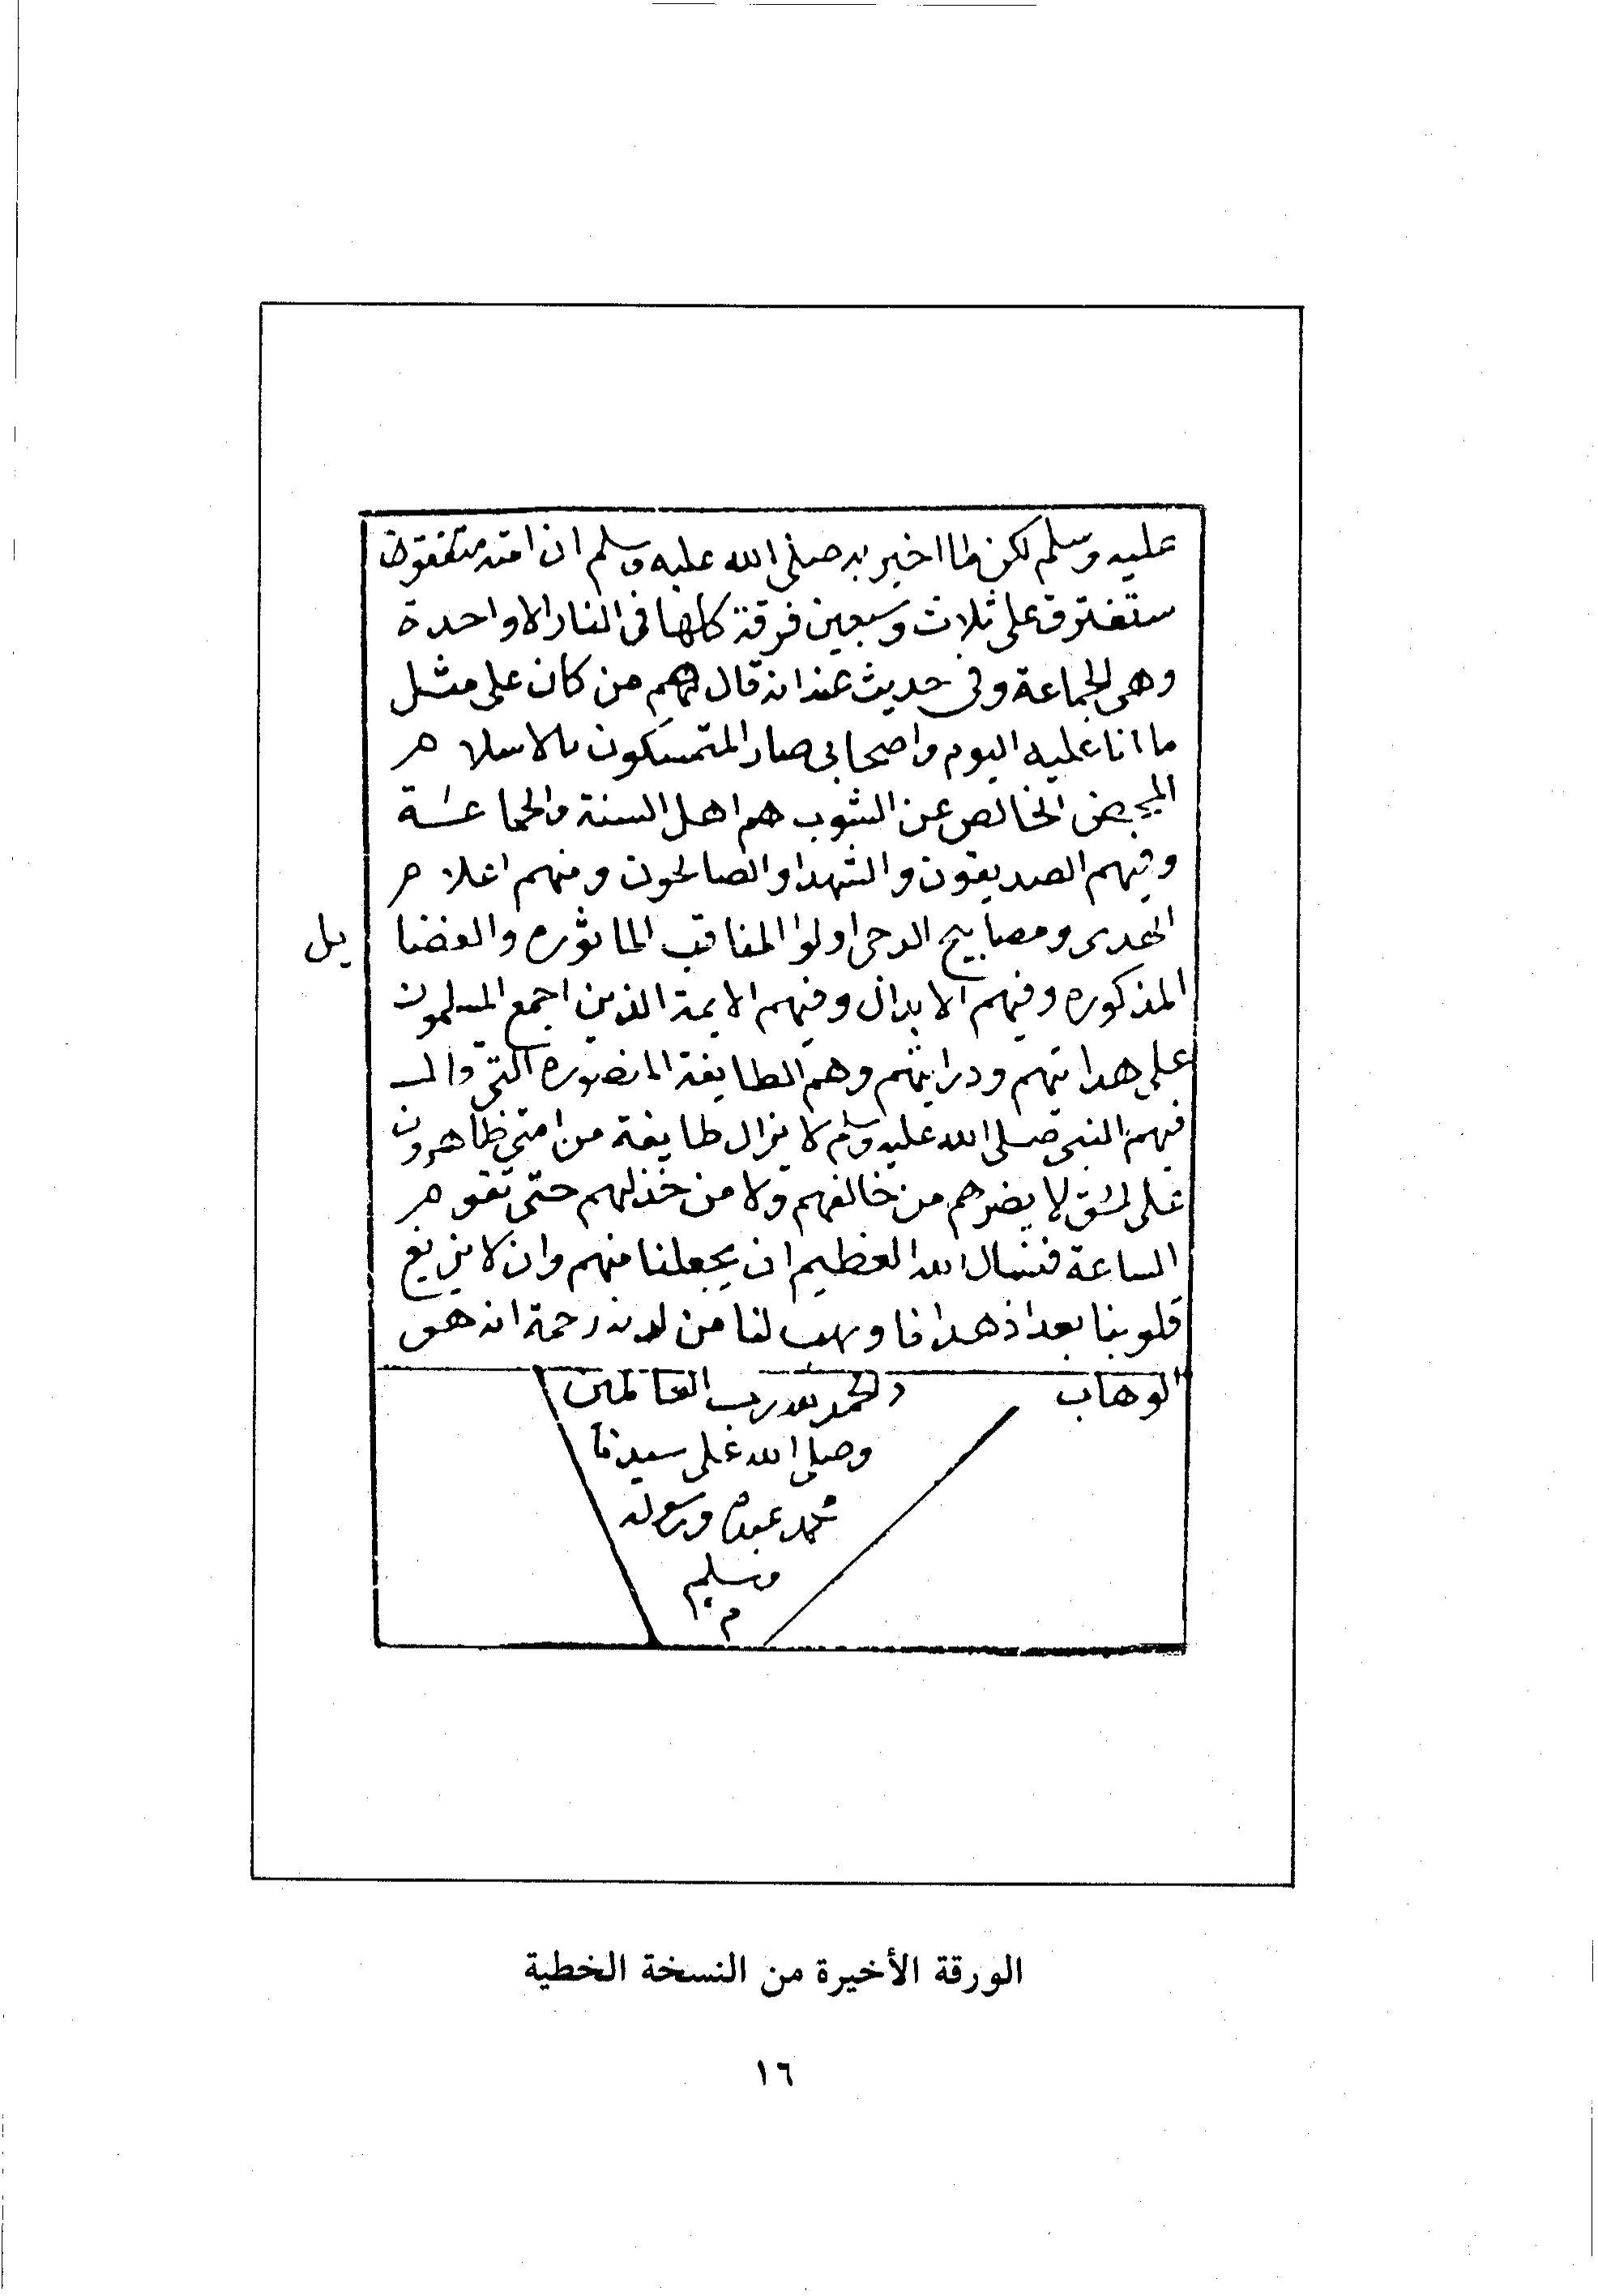 عليه وسلم لكن لما اخبر به صلى الله عليه وسلم ان امته
ستفترق على ثلاث وسبعين فرقة كلها فى النار الا واحدة
وهى الجماعة وفى حديث عنه انه قال هم من كان على مثل
ما انا عليه اليوم واصحابى صار المتمسكون بالاسلام
المحض الخالص عن الشوب هم اهل السنة والجماعة
وفيهم الصديقون والشهدا والصالحون ومنهم اعلام
الهدى ومصابيح الدجى اولوا المناقب الماثوره والفضايل
المذكوره وفيهم الابدال وفيهم الايمة الذين اجمع المسلمون
على هدايتهم ودرايتهم وهم الطايفة المنصوره التى قال
فيهم النبى صلى الله عليه وسلم لا يزال طايفة من امتى ظاهرون
على الحق لا يضرهم من خالفهم ولا من خذلهم حتى تقوم
الساعة فنسال الله العظيم ان يجعلنا منهم وان لا يزيغ
قلوبنا بعد اذ هدانا ويهب لنا من لدنه رحمة انه هو
الوهاب والحمد لله رب العالمين
وصلى الله على سيدنا
محمد عبده ورسوله
وسلم
م
الورقة الأخيرة من النسخة الخطية
١٦